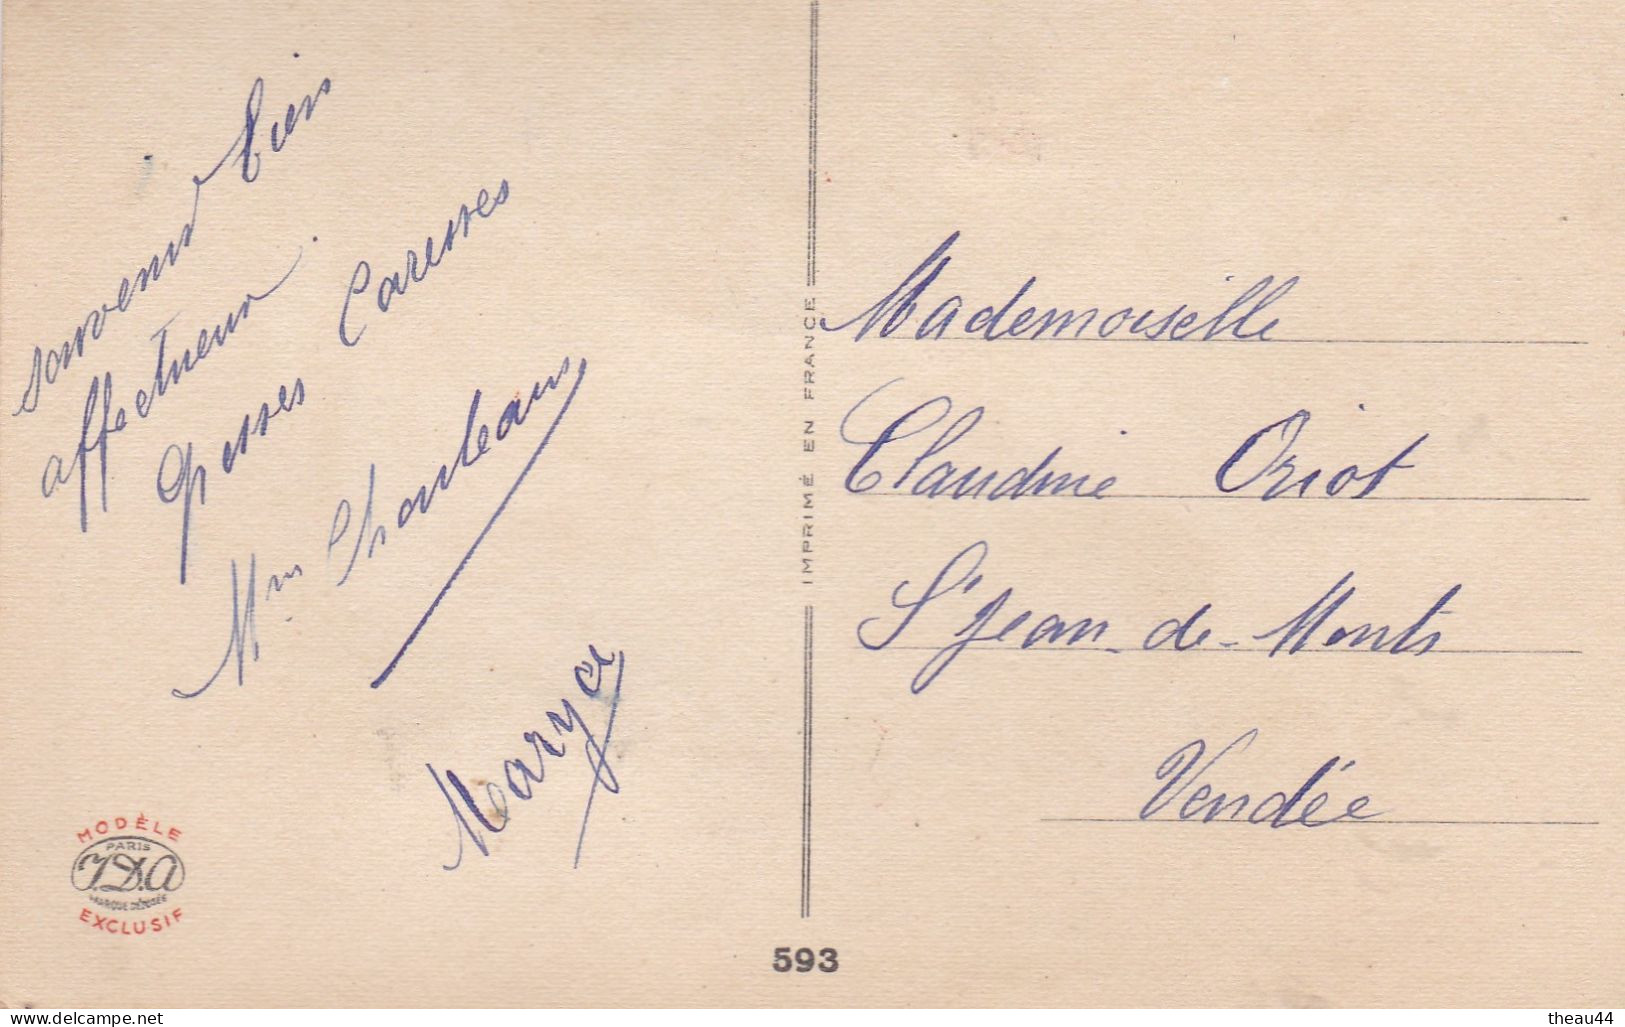 souvenir bien
affectueux.
grosses Caresses
Mme Chanteau
Maryse
MODÈLE
PARIS
J.D.A
MARQUE DÉPOSÉE
EXCLUSIF
IMPRIMÉ EN FRANCE
593
Mademoiselle
Claudine Oriot
St Jean-de-Monts
Vendée
www.delcampe.net
theau44